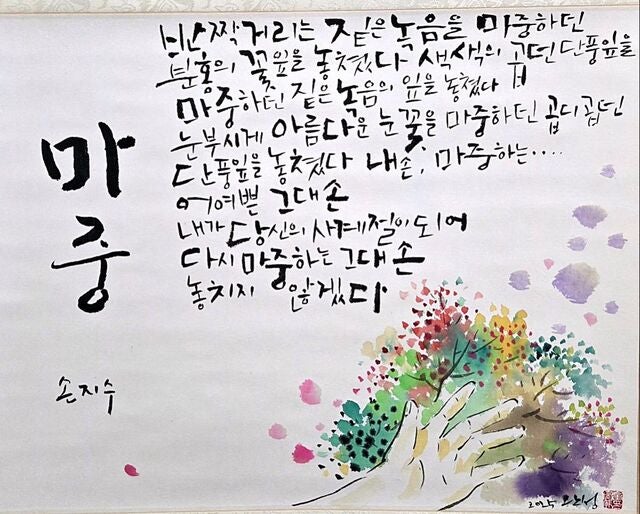 마중
반짝거리는 짙은 녹음을 마중하던
분홍의 꽃잎을 놓쳤다 색색의 곱던 단풍잎을
마중하던 짙은 녹음의 잎을 놓쳤다
눈부시게 아름다운 눈꽃을 마중하던 곱디곱던
단풍잎을 놓쳤다 내손, 마중하는....
어여쁜 그대 손
내가 당신의 사계절이 되어
다시 마중하는 그대 손
놓치지 않겠다
손지수
2025